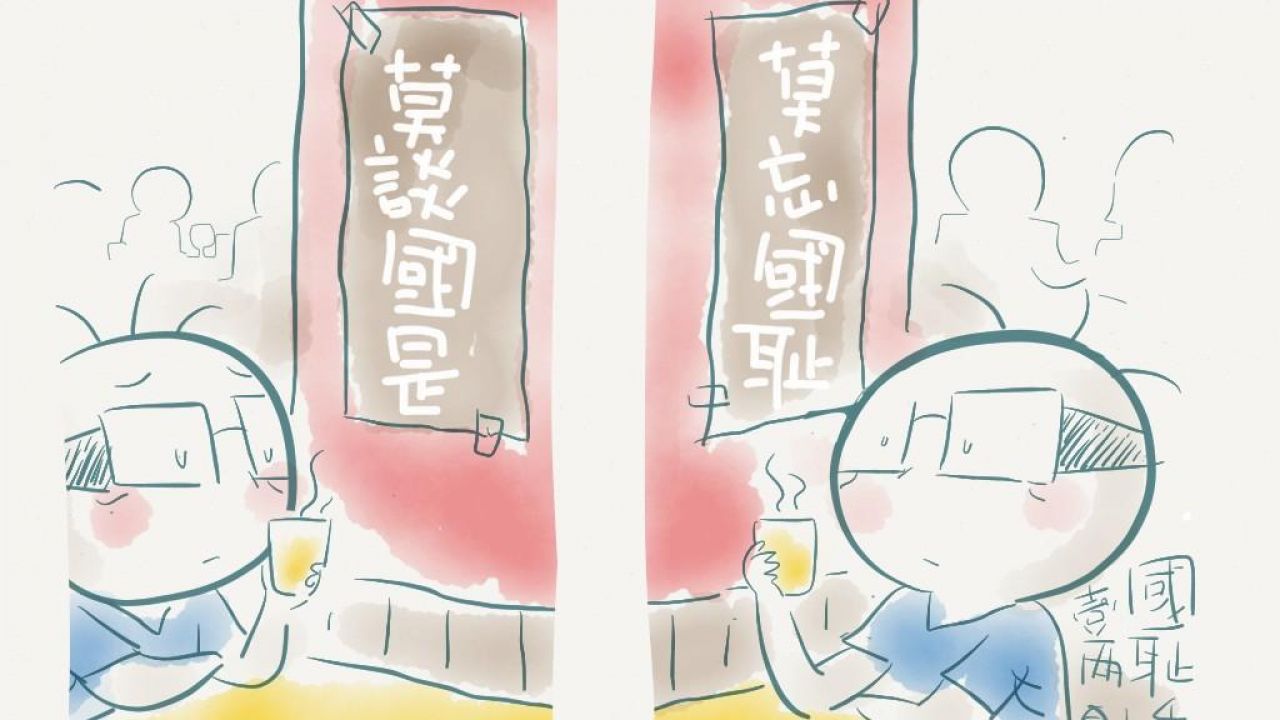 莫談國是
莫忘國恥
國恥